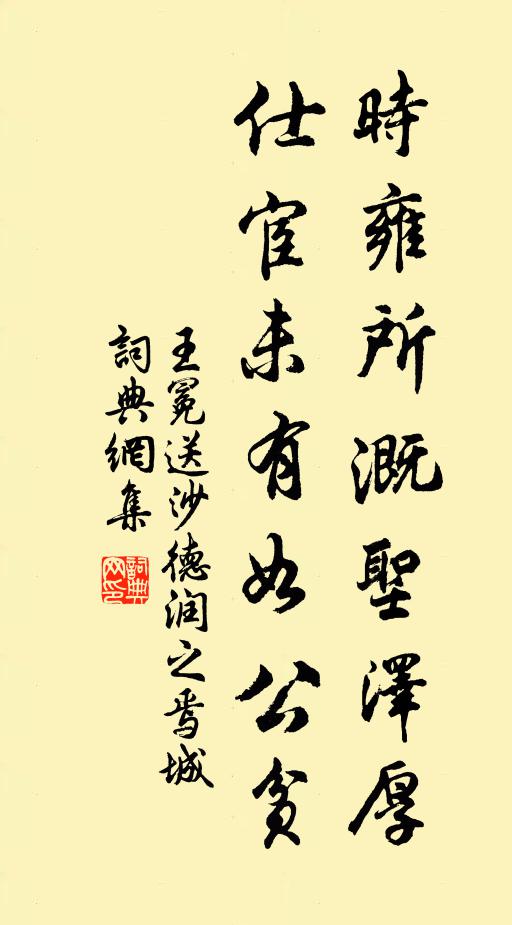 時雍所溉聖澤厚
仕宦未有如公貧
王冕送沙德润之焉城
詞典網集
詞典
网印